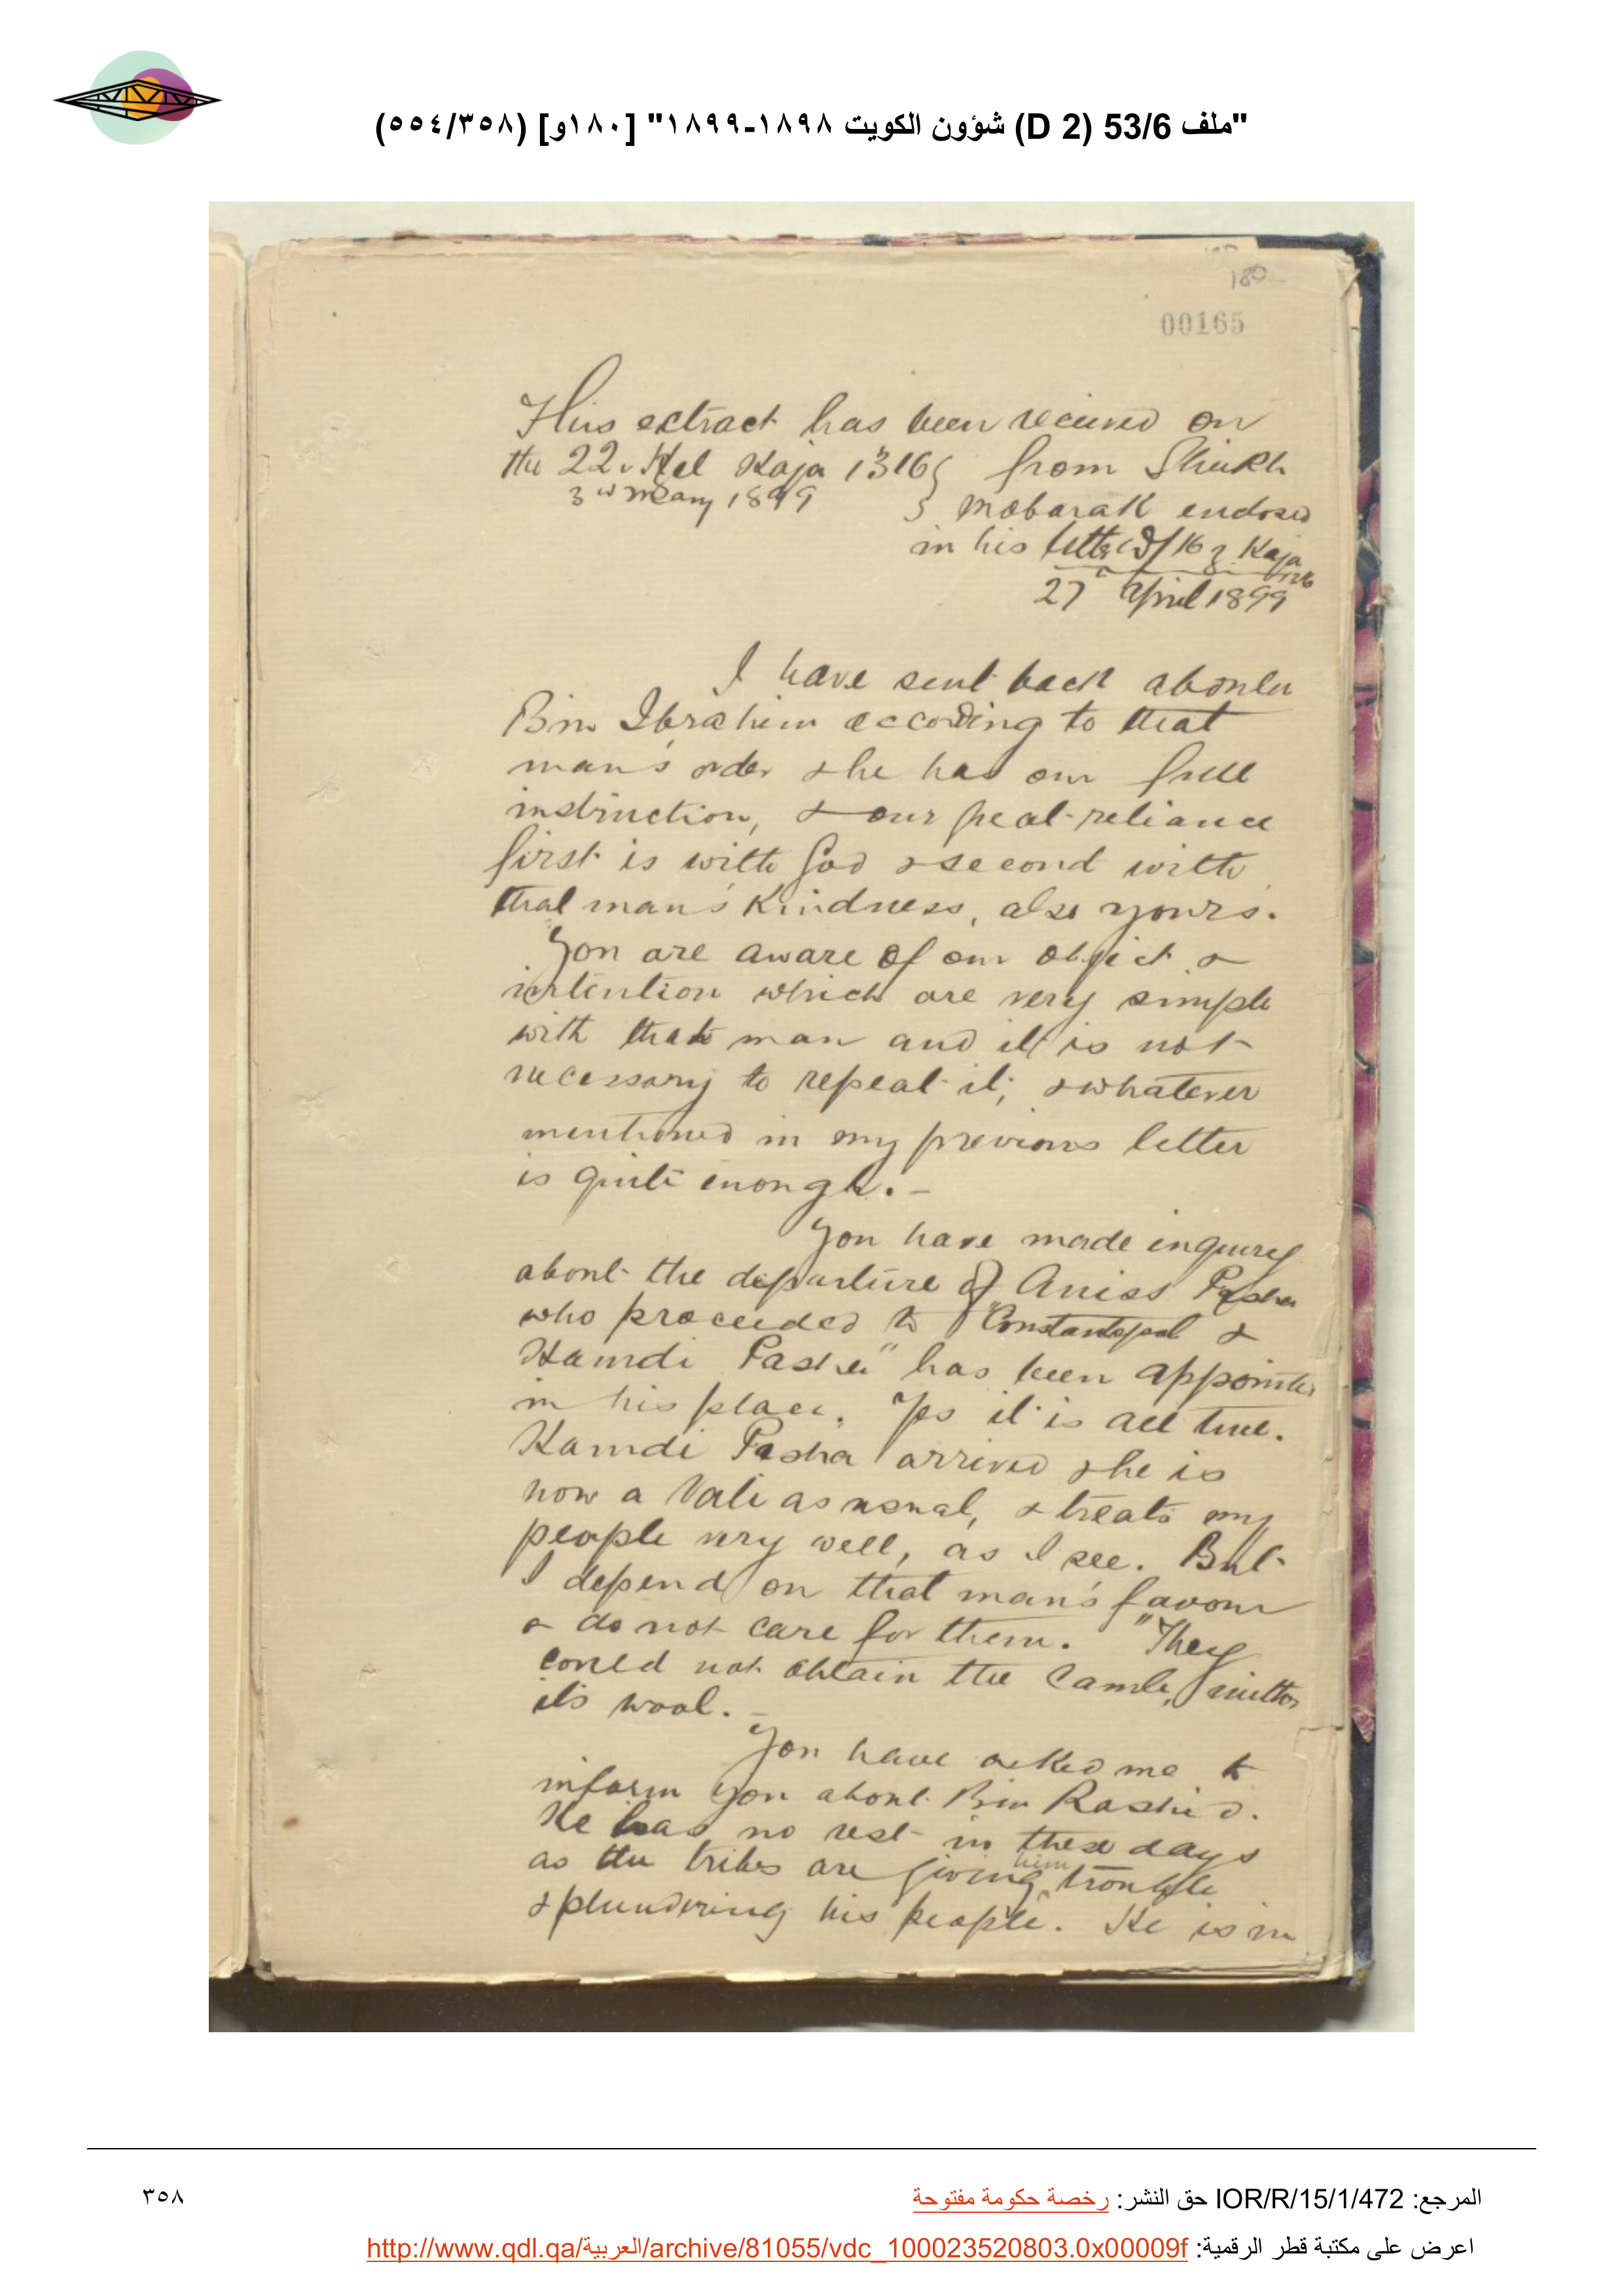 "ملف 53/6 (D 2) شؤون الكويت ١٨٩٨-١٨٩٩" [١٨٠و] (٣٥٨/٥٥٤)
180
00165
This extract has been received on
the 22 Hel Kaja 1316 from Sheikh
3rd May 1899 Mobarak enclosed
in his letter d/ 16 Z. Kaja
27 April 1899
I have sent back
Bin Ibrahim according to that
man's order & he has our full
instruction, & our great reliance
first is with God & second with
that man's kindness, also yours.
You are aware of our object &
intention which are very simple
with that man and it is not
necessary to repeat it, & whatever
mentioned in my previous letter
is quite enough. -
You have made inquirey
about the departure of Aniss Pasha
who proceeded to Constantopol &
Hamdi Pasha" has been appointed
in his place. Yes it is all true.
Hamdi Pasha arrived & he is
now a Vali as usual, & treats my
people very well, as I see. But
I depend on that man's favour
& do not care for them. "They
could not obtain the Camle, neither
its wool. -
You have asked me to
inform you about Bin Rashid.
He has no rest in these days
as the tribes are giving him trouble
& plundering his people. He is in
المرجع: IOR/R/15/1/472 حق النشر: رخصة حكومة مفتوحة
٣٥٨
اعرض على مكتبة قطر الرقمية: http://www.qdl.qa/العربية/archive/81055/vdc_100023520803.0x00009f